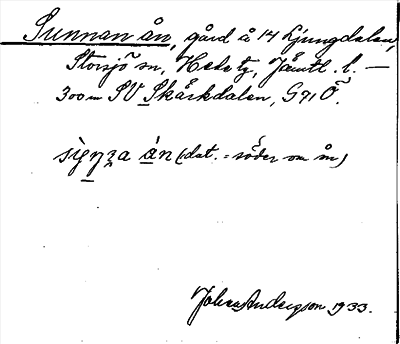 Sunnan ån, gård å 14 Ljungdalen,
Storsjö sn, Hede tg, Jämtl. l. —
300 m SV Skärkdalen, G71Ö.
ån (dat. = söder om ån)
Johan Andersson 1933.